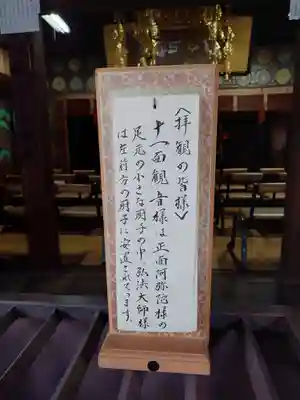 〈拝観の皆様〉
十一面観音様は正面阿弥陀様の
足元の小さな厨子の中、弘法大師様
は左前方の厨子に安置されてます。